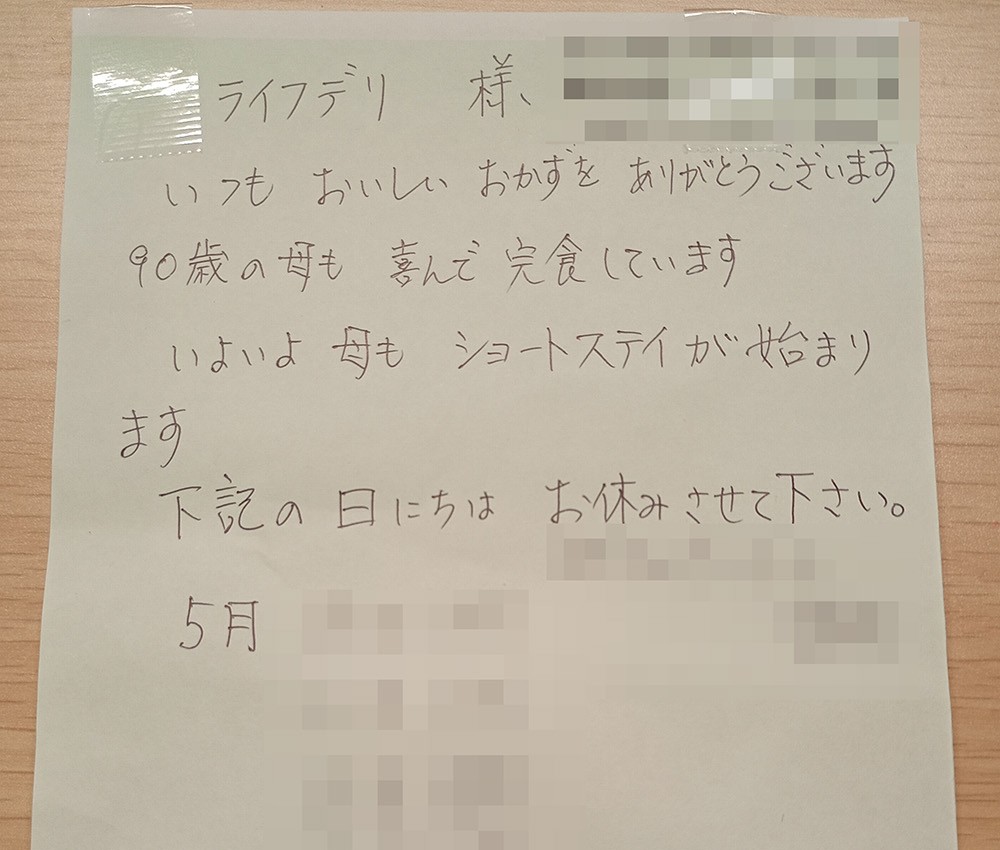 ライフデリ 様、
いつも おいしい おかずを ありがとうございます
90歳の母も 喜んで 完食しています
いよいよ 母も ショートステイが始まり
ます
下記の日にちは お休みさせて下さい。
5月